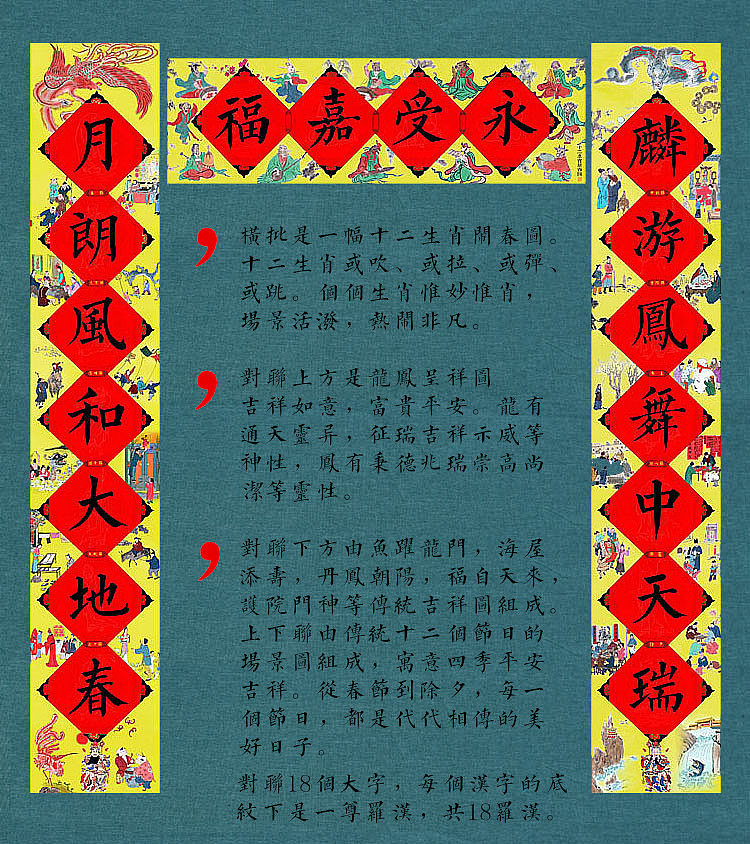 永受嘉福
麟游鳳舞中天瑞
月朗風和大地春
橫批是一幅十二生肖鬧春圖。
十二生肖或吹、或拉、或彈、
或跳。個個生肖惟妙惟肖，
場景活潑，熱鬧非凡。
對聯上方是龍鳳呈祥圖
吉祥如意，富貴平安。龍有
通天靈异，征瑞吉祥示威等
神性，鳳有秉德兆瑞崇高尚
潔等靈性。
對聯下方由魚躍龍門，海屋
添壽，丹鳳朝陽，福自天來，
護院門神等傳統吉祥圖組成。
上下聯由傳統十二個節日的
場景圖組成，寓意四季平安
吉祥。從春節到除夕，每一
個節日，都是代代相傳的美
好日子。
對聯18個大字，每個漢字的底
紋下是一尊羅漢，共18羅漢。